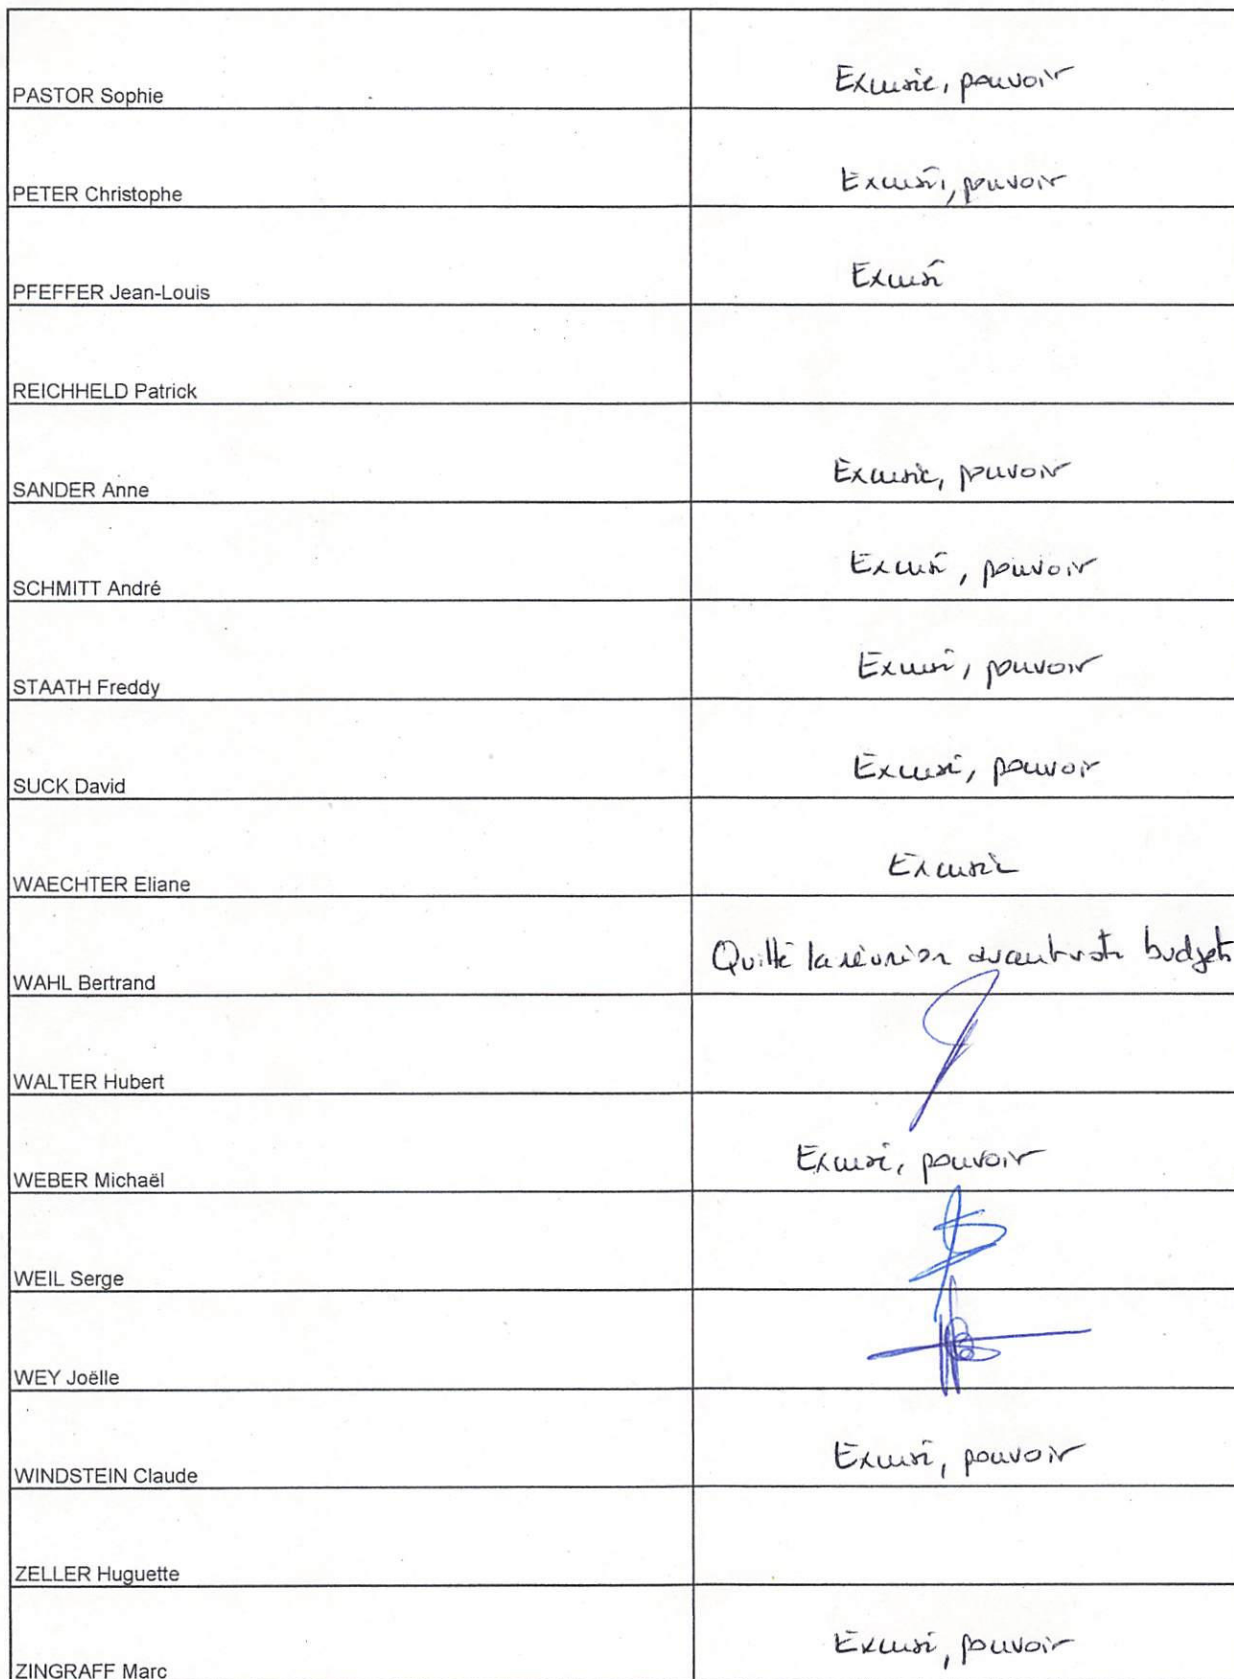 PASTOR Sophie Excusée, pouvoir
PETER Christophe Excusé, pouvoir
PFEFFER Jean-Louis Excusé
REICHHELD Patrick
SANDER Anne Excusée, pouvoir
SCHMITT André Excusé, pouvoir
STAATH Freddy Excusé, pouvoir
SUCK David Excusé, pouvoir
WAECHTER Eliane Excusée
WAHL Bertrand Quitté la réunion avant vote budgets
WALTER Hubert
WEBER Michaël Excusé, pouvoir
WEIL Serge
WEY Joëlle
WINDSTEIN Claude Excusé, pouvoir
ZELLER Huguette
ZINGRAFF Marc Excusé, pouvoir